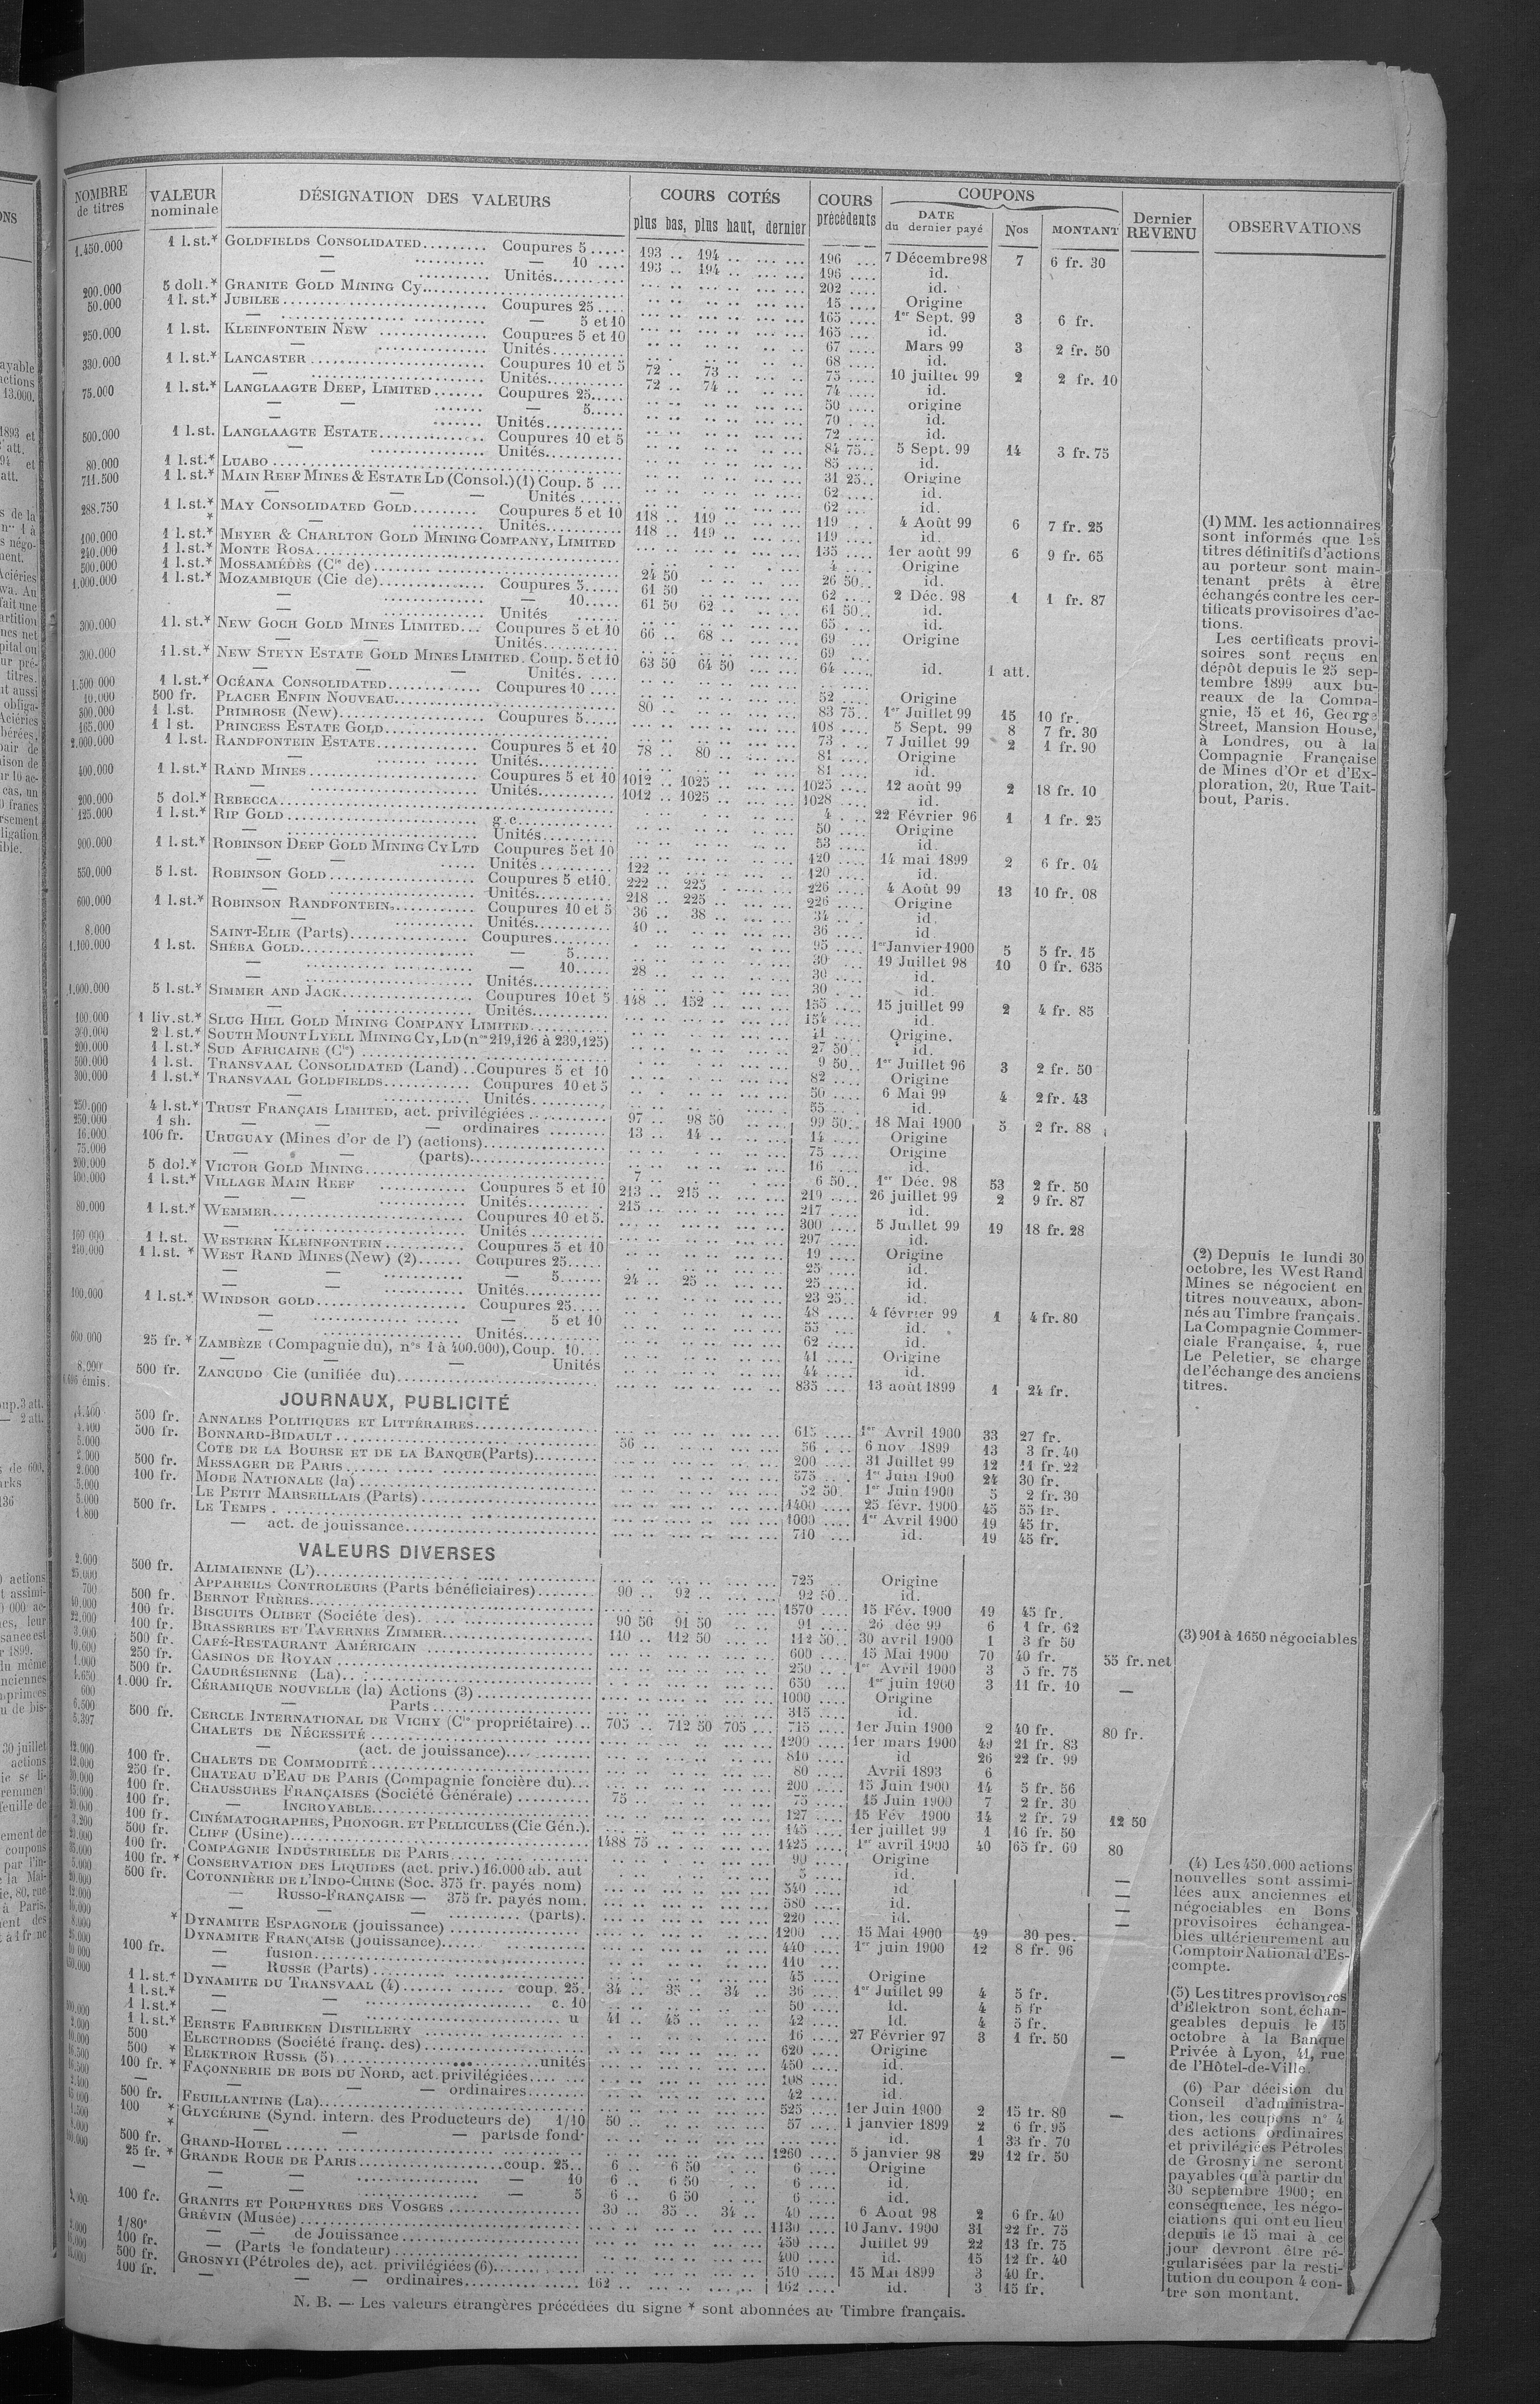 NOMBRE de titres | VALEUR nominale | DÉSIGNATION DES VALEURS | COURS COTÉS plus bas, plus haut, dernier | COURS précédents | COUPONS DATE du dernier payé | Nos | MONTANT | Dernier REVENU | OBSERVATIONS
1.450.000 1 l.st.* GOLDFIELDS CONSOLIDATED......... Coupures 5 ..... 193 .. 194 .. ... ... 196 .... 7 Décembre 98 7 6 fr. 30
— .......... — 10 .... 193 .. 194 .. ... ... 196 .... id.
.......... Unités.......... 202 .... id.
200.000 5 doll.* GRANITE GOLD MINING Cy.......... 15 .... Origine
50.000 1 l. st.* JUBILEE .......... Coupures 25 .... 165 .... 1er Sept. 99 3 6 fr.
— .......... — 5 et 10 165 .... id.
250.000 1 l.st. KLEINFONTEIN NEW .......... Coupures 5 et 10 67 .... Mars 99 3 2 fr. 50
— .......... Unités.......... 68 .... id.
330.000 1 l.st.* LANCASTER .......... Coupures 10 et 5 72 .. 73 .. 75 .... 10 juillet 99 2 2 fr. 10
— .......... Unités.......... 72 .. 74 .. 74 .... id.
75.000 1 l.st.* LANGLAAGTE DEEP, LIMITED....... Coupures 25..... 50 .... origine
— — ....... — 5..... 70 .... id.
....... Unités.......... 72 .... id.
500.000 1 l.st. LANGLAAGTE ESTATE.......... Coupures 10 et 5 84 75.. 5 Sept. 99 14 3 fr. 75
— .......... Unités.......... 85 .... id.
80.000 1 l.st.* LUABO .......... 31 25.. Origine
711.500 1 l. st.* MAIN REEF MINES & ESTATE LD (Consol.)(1) Coup. 5 ... 62 .... id.
— — — Unités ...... 62 .... id.
288.750 1 l.st.* MAY CONSOLIDATED GOLD......... Coupures 5 et 10 118 .. 119 .. 119 .... 4 Août 99 6 7 fr. 25
* — .......... Unités.......... 118 .. 119 .. 119 .... id.
100.000 1 l.st.* MEYER & CHARLTON GOLD MINING COMPANY, LIMITED 135 .... 1er août 99 6 9 fr. 65
240.000 1 l.st.* MONTE ROSA.......... 4 .... Origine
500.000 1 l.st.* MOSSAMÉDÈS (Cie de) .......... 24 50 26 50.. id.
1.000.000 1 l.st.* MOZAMBIQUE (Cie de).......... Coupures 5..... 61 50 62 .... 2 Déc. 98 1 1 fr. 87
— .......... — 10..... 61 50 62 .. 61 50.. id.
— .......... Unités ...... 65 .... id.
300.000 1 l. st.* NEW GOCH GOLD MINES LIMITED... Coupures 5 et 10 66 .. 68 .. 69 .... Origine
— — Unités.......... 69 ....
300.000 1 l.st.* NEW STEYN ESTATE GOLD MINES LIMITED. Coup. 5 et 10 63 50 64 50 64 .... id. 1 att.
— — — Unités. ....
1.500 000 1 l.st.* OCÉANA CONSOLIDATED.......... Coupures 10 .... 52 .... Origine
10.000 500 fr. PLACER ENFIN NOUVEAU.......... 80 .. 83 75.. 1er Juillet 99 15 10 fr.
300.000 1 l.st. PRIMROSE (New).......... Coupures 5..... 108 .... 5 Sept. 99 8 7 fr. 30
165.000 1 l st. PRINCESS ESTATE GOLD.......... 73 .... 7 Juillet 99 2 1 fr. 90
2.000.000 1 l.st. RANDFONTEIN ESTATE.......... Coupures 5 et 10 78 .. 80 .. 81 .... Origine
— .......... Unités.......... 81 .... id.
400.000 1 l.st.* RAND MINES .......... Coupures 5 et 10 1012 .. 1025 .. 1025 .... 12 août 99 2 18 fr. 10
— .......... Unités.......... 1012 .. 1025 .. 1028 .... id.
200.000 5 dol.* REBECCA.......... 4 .... 22 Février 96 1 1 fr. 25
125.000 1 l.st.* RIP GOLD .......... g.c.......... 50 .... Origine
— .......... Unités.......... 53 .... id.
900.000 1 l.st.* ROBINSON DEEP GOLD MINING CY LTD Coupures 5 et 10 120 .... 14 mai 1899 2 6 fr. 04
— — ..... Unités .......... 122 .. 120 .... id.
550.000 5 l.st. ROBINSON GOLD .......... Coupures 5 et 10. 222 .. 225 .. 226 .... 4 Août 99 13 10 fr. 08
— .......... Unités.......... 218 .. 225 .. 226 .... Origine
600.000 1 l.st.* ROBINSON RANDFONTEIN.......... Coupures 10 et 5 36 .. 38 .. 34 .... id.
— .......... Unités.......... 40 .. 36 .... id
8.000 SAINT-ELIE (Parts).......... Coupures........ 95 .... 1er Janvier 1900 5 5 fr. 15
1.100.000 1 l.st. SHEBA GOLD.......... — 5..... 30 .... 19 Juillet 98 10 0 fr. 635
— .......... — 10..... 28 .. 30 .... id.
— .......... Unités.......... 30 .... id.
1.000.000 5 l.st.* SIMMER AND JACK.......... Coupures 10 et 5 148 .. 152 .. 155 .... 15 juillet 99 2 4 fr. 85
— .......... Unités.......... 154 .... id.
100.000 1 liv.st.* SLUG HILL GOLD MINING COMPANY LIMITED.......... 41 .... Origine.
300.000 2 l.st.* SOUTH MOUNT LYELL MINING CY, LD (nos 219,126 à 239,125) 27 50.. id.
200.000 1 l.st.* SUD AFRICAINE (Cie) .......... 9 50.. 1er Juillet 96 3 2 fr. 50
500.000 1 l.st. TRANSVAAL CONSOLIDATED (Land) ..Coupures 5 et 10 82 .... Origine
300.000 1 l.st.* TRANSVAAL GOLDFIELDS.......... Coupures 10 et 5 50 .... 6 Mai 99 4 2 fr. 43
.......... Unités.......... 55 .... id.
250.000 4 l.st.* TRUST FRANÇAIS LIMITED, act. privilégiées .......... 97 .. 98 50 99 50.. 18 Mai 1900 5 2 fr. 88
250.000 1 sh. — — — ordinaires ........ 13 .. 14 .. 14 .... Origine
16.000 100 fr. URUGUAY (Mines d'or de l') (actions).......... 75 .... Origine
75.000 — — (parts).......... 16 .... id.
200.000 5 dol.* VICTOR GOLD MINING.......... 7 .. 6 50.. 1er Déc. 98 53 2 fr. 50
400.000 1 l.st.* VILLAGE MAIN REEF .......... Coupures 5 et 10 213 .. 215 .. 219 .... 26 juillet 99 2 9 fr. 87
— — .......... Unités.......... 215 .. 217 .... id.
80.000 1 l.st.* WEMMER.......... Coupures 10 et 5. 300 .... 5 Juillet 99 19 18 fr. 28
— .......... Unités .......... 297 .... id.
160 000 1 l.st. WESTERN KLEINFONTEIN.......... Coupures 5 et 10 19 .... Origine
240.000 1 l.st. * WEST RAND MINES (New) (2)...... Coupures 25..... 25 .... id.
— — .......... — 5...... 24 .. 25 .. 25 .... id.
— — .......... Unités.......... 23 25.. id.
100.000 1 l.st.* WINDSOR GOLD.......... Coupures 25.... 48 .... 4 février 99 1 4 fr. 80
— .......... — 5 et 10 55 .... id.
— .......... Unités.......... 62 .... id.
660.000 25 fr. * ZAMBÈZE (Compagnie du), nos 1 à 400.000), Coup. 10... 41 .... Origine
— — — Unités 44 .... id.
8.000 500 fr. ZANCUDO Cie (unifiée du).......... 835 .... 13 août 1899 1 24 fr.
émis.
JOURNAUX, PUBLICITÉ
500 fr. ANNALES POLITIQUES ET LITTÉRAIRES.......... 615 .... 1er Avril 1900 33 27 fr.
500 fr. BONNARD-BIDAULT .......... 56 .. 56 .... 6 nov 1899 13 3 fr. 40
5.000 COTE DE LA BOURSE ET DE LA BANQUE (Parts).......... 200 .... 31 Juillet 99 12 11 fr. 22
500 fr. MESSAGER DE PARIS .......... 575 .... 1er Juin 1900 24 30 fr.
2.000 100 fr. MODE NATIONALE (la) .......... 52 50. 1er Juin 1900 5 2 fr. 30
LE PETIT MARSEILLAIS (Parts) .......... 1400 .... 25 févr. 1900 45 55 fr.
5.000 500 fr. LE TEMPS .......... 1000 .... 1er Avril 1900 19 45 fr.
1.800 — act. de jouissance.......... 710 .... id. 19 45 fr.
VALEURS DIVERSES
2.000 500 fr. ALIMAIENNE (L').......... 725 Origine
25.000 APPAREILS CONTROLEURS (Parts bénéficiaires)........ 90 .. 92 .. 92 50.. id.
700 500 fr. BERNOT FRÈRES.......... 1570 .... 15 Fév. 1900 19 45 fr.
40.000 100 fr. BISCUITS OLIBET (Sociéte des). .......... 90 50 91 50 91 .... 26 déc 99 6 1 fr. 62
22.000 100 fr. BRASSERIES ET TAVERNES ZIMMER.......... 110 .. 112 50 112 50.. 30 avril 1900 1 3 fr 50
3.000 500 fr. CAFÉ-RESTAURANT AMÉRICAIN .......... 600 .... 15 Mai 1900 70 40 fr. 55 fr. net
10.600 250 fr. CASINOS DE ROYAN .......... 250 .... 1er Avril 1900 3 5 fr. 75
1.000 500 fr. CAUDRÉSIENNE (La).......... 650 .... 1er juin 1900 3 11 fr. 10 —
1.650 1.000 fr. CÉRAMIQUE NOUVELLE (la) Actions (3) .......... 1000 .... Origine
600 — Parts .......... 315 .... id.
6.500 500 fr. CERCLE INTERNATIONAL DE VICHY (Cie propriétaire)... 705 .. 712 50 705 ... 715 .... 1er Juin 1900 2 40 fr. 80 fr.
5.397 CHALETS DE NÉCESSITÉ .......... 1200 .... 1er mars 1900 49 21 fr. 83
— (act. de jouissance).......... 810 .... id 26 22 fr. 99
12.000 100 fr. CHALETS DE COMMODITÉ .......... 80 .... Avril 1893 6
250 fr. CHATEAU D'EAU DE PARIS (Compagnie foncière du)... 200 .... 15 Juin 1900 14 5 fr. 56
100 fr. CHAUSSURES FRANÇAISES (Société Générale) .......... 75 .. 75 .... 15 Juin 1900 7 2 fr. 30
100 fr. — INCROYABLE.......... 127 .... 15 Fév 1900 14 2 fr. 79 12 50
100 fr. CINÉMATOGRAPHES, PHONOGR. ET PELLICULES (Cie Gén.). 145 .... 1er juillet 99 1 16 fr. 50
3.200 500 fr. CLIFF (Usine).......... 1488 75 1425 .... 1er avril 1900 40 65 fr. 60 80
100 fr. COMPAGNIE INDUSTRIELLE DE PARIS.......... 90 .... Origine
100 fr. * CONSERVATION DES LIQUIDES (act. priv.) 16.000 ab. aut 5 .... id.
500 fr. COTONNIÈRE DE L'INDO-CHINE (Soc. 375 fr. payés nom) 340 .... id —
— RUSSO-FRANÇAISE — 375 fr. payés nom. 580 .... id. —
— — — .......... (parts). 220 .... id. —
* DYNAMITE ESPAGNOLE (jouissance) .......... 1200 15 Mai 1900 49 30 pes. —
DYNAMITE FRANÇAISE (jouissance).......... 440 .... 1er juin 1900 12 8 fr. 96
100 fr. — fusion.......... 110 ....
— RUSSE (Parts) .......... 45 .... Origine
1 l.st.* DYNAMITE DU TRANSVAAL (4).......... coup. 25. 34 .. 35 .. 34 .. 36 .... 1er Juillet 99 4 5 fr.
1 l.st.* — — .......... c. 10 50 .... id. 4 5 fr
1 l.st.* — — .......... u 41 .. 45 .. 42 .... id. 4 5 fr.
1 l.st.* EERSTE FABRIEKEN DISTILLERY .......... 16 .... 27 Février 97 3 1 fr. 50
500 ELECTRODES (Société franç. des) .......... 620 .... Origine
500 * ELEKTRON RUSSE (5).......... unités 450 .... id. —
100 fr. * FAÇONNERIE DE BOIS DU NORD, act. privilégiées.......... 108 .... id.
— — — — ordinaires........ 42 .... id.
500 fr. FEUILLANTINE (La).......... 525 .... 1er Juin 1900 2 15 fr. 80
100 * GLYCÉRINE (Synd. intern. des Producteurs de) 1/10 50 .. 57 .... 1 janvier 1899 2 6 fr. 95 —
* — — — parts de fond. .... id. 1 33 fr. 70
500 fr. GRAND-HOTEL .......... 1260 .... 5 janvier 98 29 12 fr. 50
25 fr. * GRANDE ROUE DE PARIS ..........coup. 25.. 6 .. 6 50 6 .... Origine
— — .......... — 10 6 .. 6 50 6 .... id.
— — .......... — 5 6 .. 6 50 6 .... id.
100 fr. GRANITS ET PORPHYRES DES VOSGES .......... 30 .. 35 .. 34 .. 40 .... 6 Aout 98 2 6 fr. 40
GRÉVIN (Musée) .......... 1130 .... 10 Janv. 1900 31 22 fr. 75
1/80e — — de Jouissance .......... 450 .... Juillet 99 22 13 fr. 75
100 fr. — (Parts de fondateur) .......... 400 .... id. 15 12 fr. 40
500 fr. GROSNYI (Pétroles de), act. privilégiées (6).......... 510 .... 15 Mai 1899 3 40 fr.
100 fr. — — — ordinaires.......... 162 .. 162 .... id. 3 15 fr.
N. B. — Les valeurs étrangères précédées du signe * sont abonnées au Timbre français.
(1) MM. les actionnaires
sont informés que les
titres définitifs d'actions
au porteur sont main-
tenant prêts à être
échangés contre les cer-
tificats provisoires d'ac-
tions.
Les certificats provi-
soires sont reçus en
dépôt depuis le 25 sep-
tembre 1899 aux bu-
reaux de la Compa-
gnie, 15 et 16, George
Street, Mansion House,
à Londres, ou à la
Compagnie Française
de Mines d'Or et d'Ex-
ploration, 20, Rue Tait-
bout, Paris.
(2) Depuis le lundi 30
octobre, les West Rand
Mines se négocient en
titres nouveaux, abon-
nés au Timbre français.
La Compagnie Commer-
ciale Française, 4, rue
Le Peletier, se charge
de l'échange des anciens
titres.
(3) 901 à 1650 négociables
(4) Les 450.000 actions
nouvelles sont assimi-
lées aux anciennes et
négociables en Bons
provisoires échangea-
bles ultérieurement au
Comptoir National d'Es-
compte.
(5) Les titres provisoires
d'Elektron sont échan-
geables depuis le 15
octobre à la Banque
Privée à Lyon, 41, rue
de l'Hôtel-de-Ville.
(6) Par décision du
Conseil d'administra-
tion, les coupons n° 4
des actions ordinaires
et privilégiées Pétroles
de Grosnyi ne seront
payables qu'à partir du
30 septembre 1900; en
conséquence, les négo-
ciations qui ont eu lieu
depuis le 15 mai à ce
jour devront être ré-
gularisées par la resti-
tution du coupon 4 con-
tre son montant.